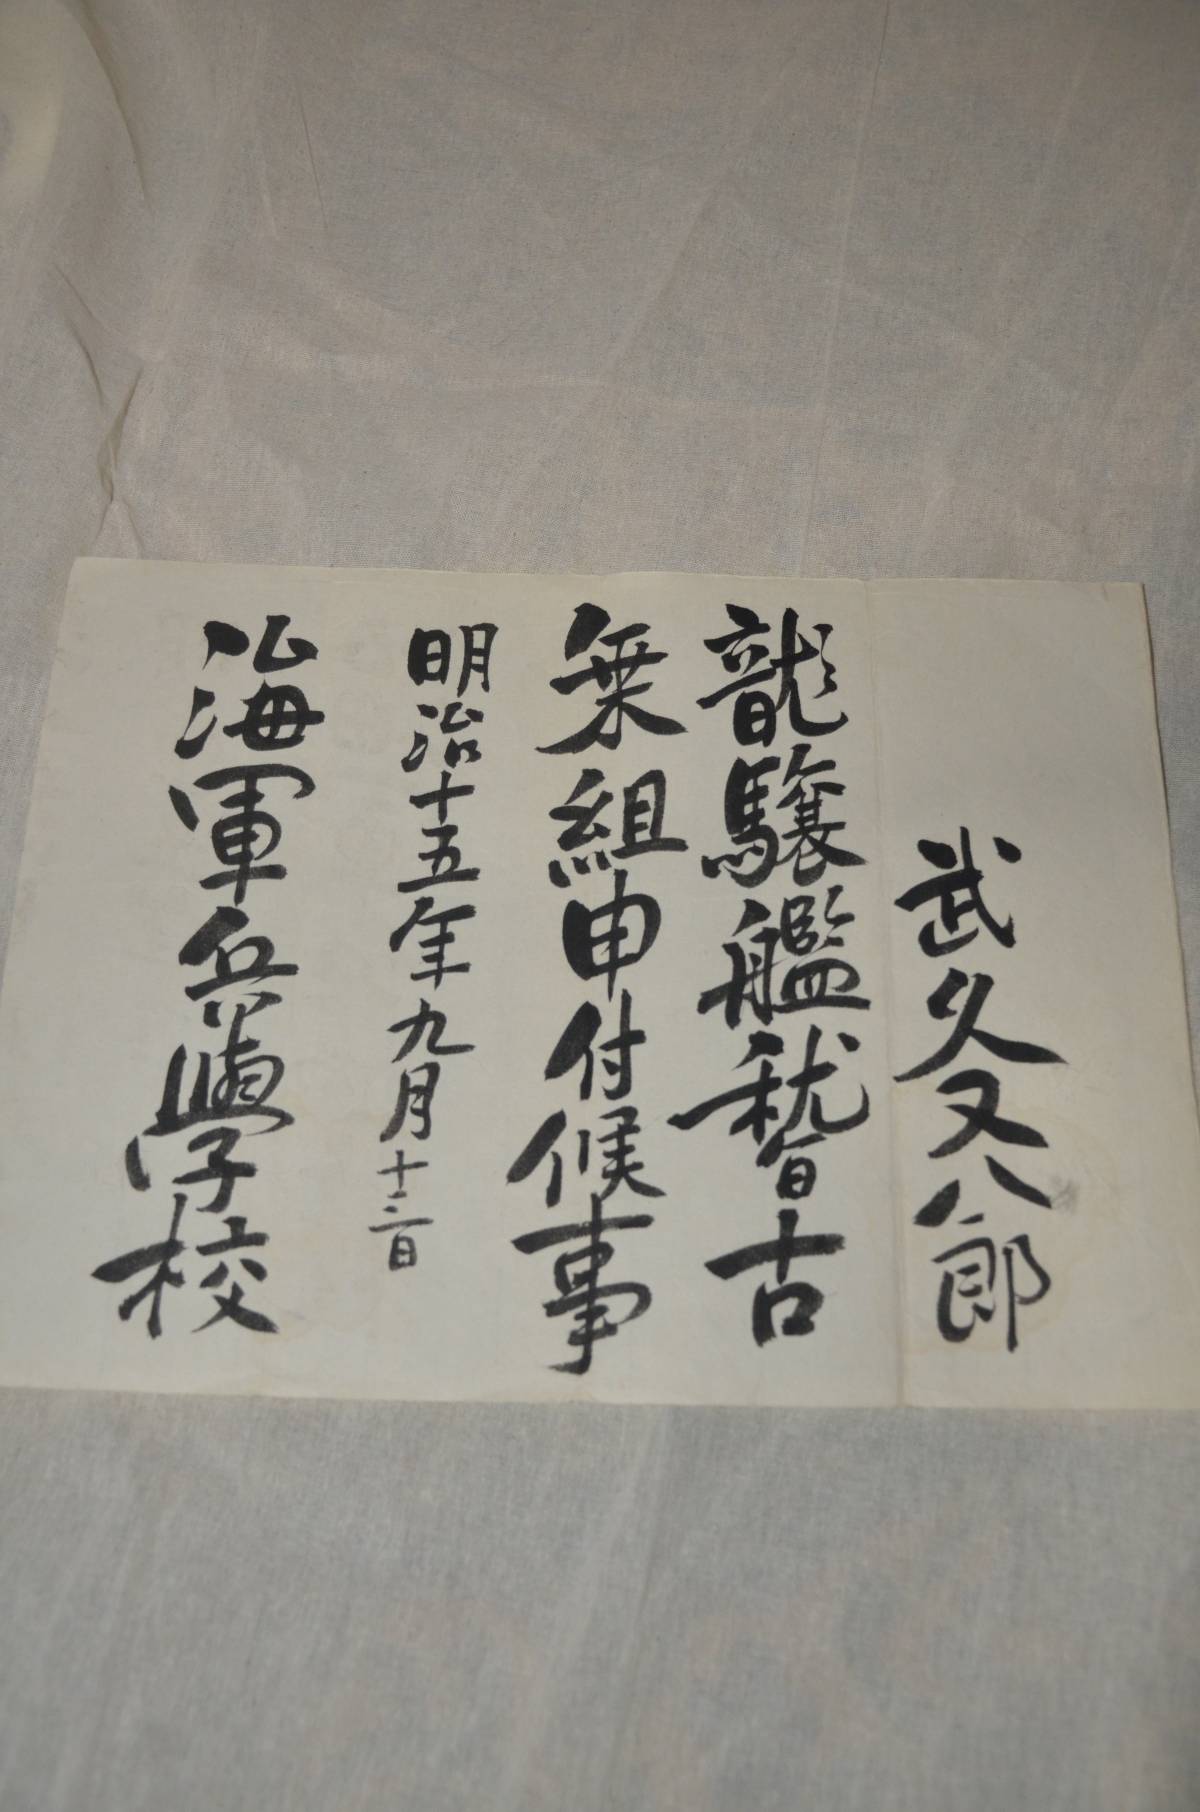 武久又八郎
龍驤艦稽古
乗組申付候事
明治十五年九月十二日
海軍兵學校